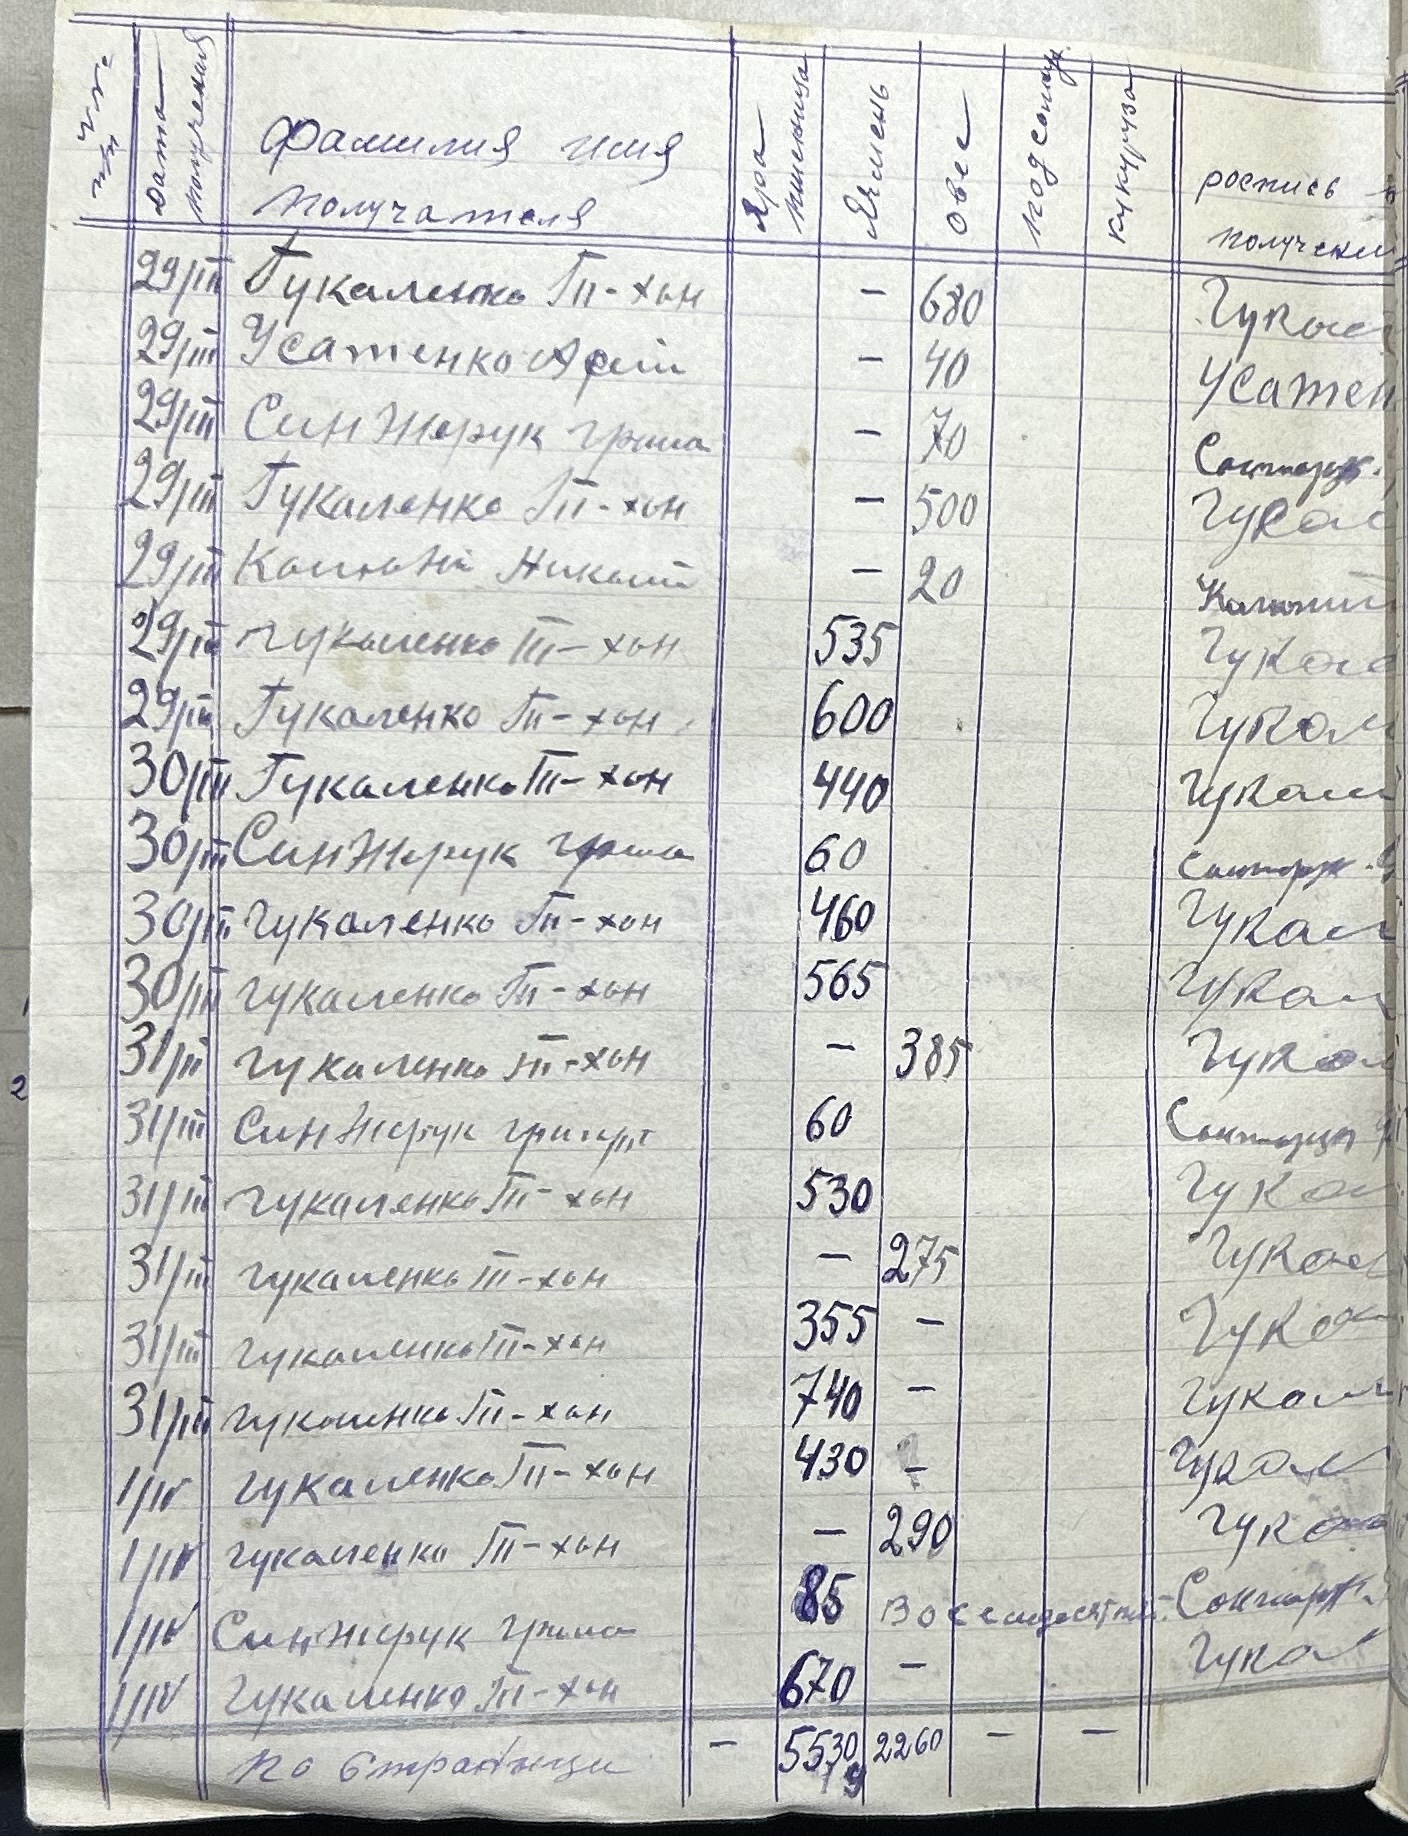 №№ пп Дата получения Фамилия имя получателя Яра пшеница Ячмень Овес подсолнух кукуруза роспись получении
29/III Гукаленко Ти-хон – 680 Гукал
29/III Усатенко – 40 Усатен
29/III Синжерук гриша – 70
29/III Гукаленко Ти-хон – 500 Гукал
29/III – 20
29/III гукаленко Ти-хон 535 Гукал
29/III Гукаленко Ти-хон 600 Гукал
30/III Гукаленко Ти-хон 440 Гукал
30/III Синжерук гриша 60
30/III гукаленко Ти-хон 460 Гукал
30/III гукаленко Ти-хон 565 Гукал
31/III гукаленко Ти-хон – 385 Гукал
31/III Синжерук 60
31/III гукаленко Ти-хон 530 Гукал
31/III гукаленко Ти-хон – 275 Гукал
31/III гукаленко Ти-хон 355 – Гукал
31/III гукаленко Ти-хон 740 – Гукал
1/IV гукаленко Ти-хон 430 – Гукал
1/IV гукаленко Ти-хон – 290 Гукал
1/IV Синжерук гриша 85
1/IV гукаленко Ти-хон 670 – Гукал
по страници – 5530 2260 – –